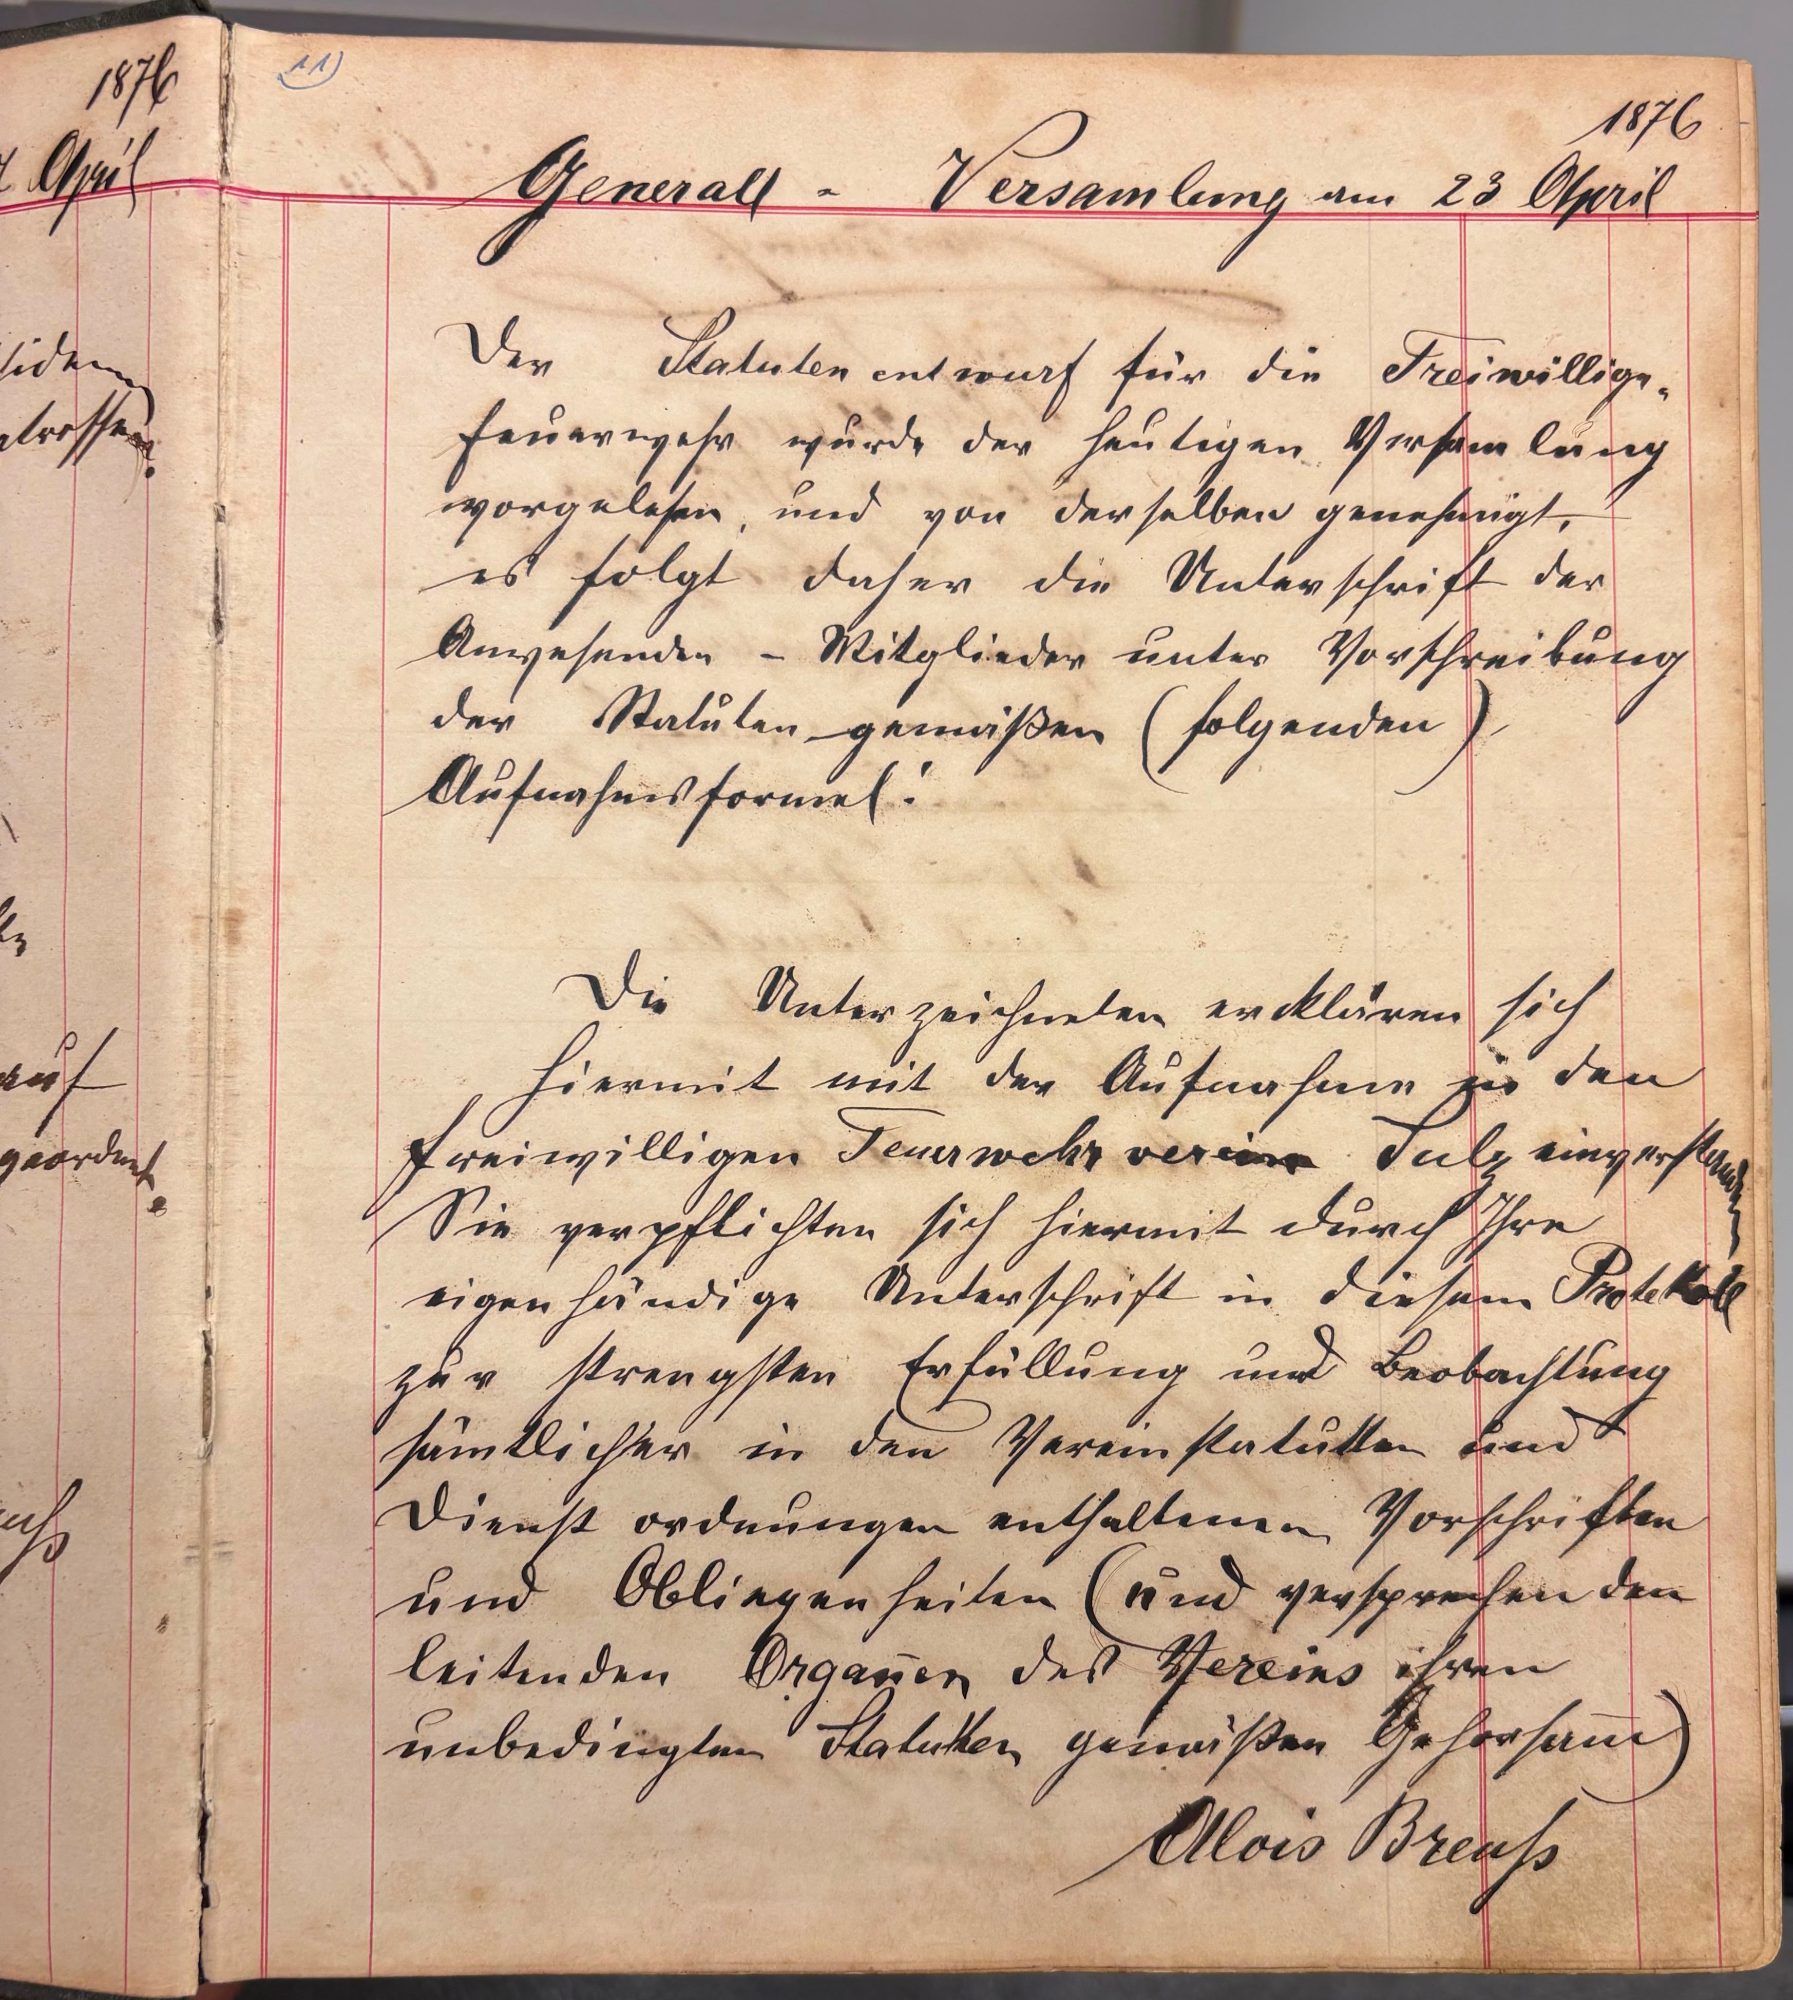 1876
April
11)
1876
Generall - Versamlung am 23 April
Der Statuten entwurf für die Freiwillige-
feuerwehr wurde der heutigen Versamlung
vorgelesen, und von derselben genehmigt,
es folgt daher die Unterschrift der
Anwesenden - Mitglieder unter Vorschreibung
der Statuten gemäßen (folgenden)
Aufnahmsformel:
Die Unterzeichneten ercklären sich
hiermit mit der Aufnahme in den
freiwilligen Feuerwehrverein Sulz einverstanden
Sie verpflichten sich hiermit durch Ihre
eigenhändige Unterschrift in diesem Protekoll
zur strengsten Erfüllung und Beobachtung
sämtlicher in den Vereinstatutten und
Dienst ordnungen enthaltenen Vorschriften
und Obliegenheiten (und versprechen den
leitenden Organnen des Vereins ihren
unbedingten Statutten gemäßen Gehorsamm)
Alois Breuß